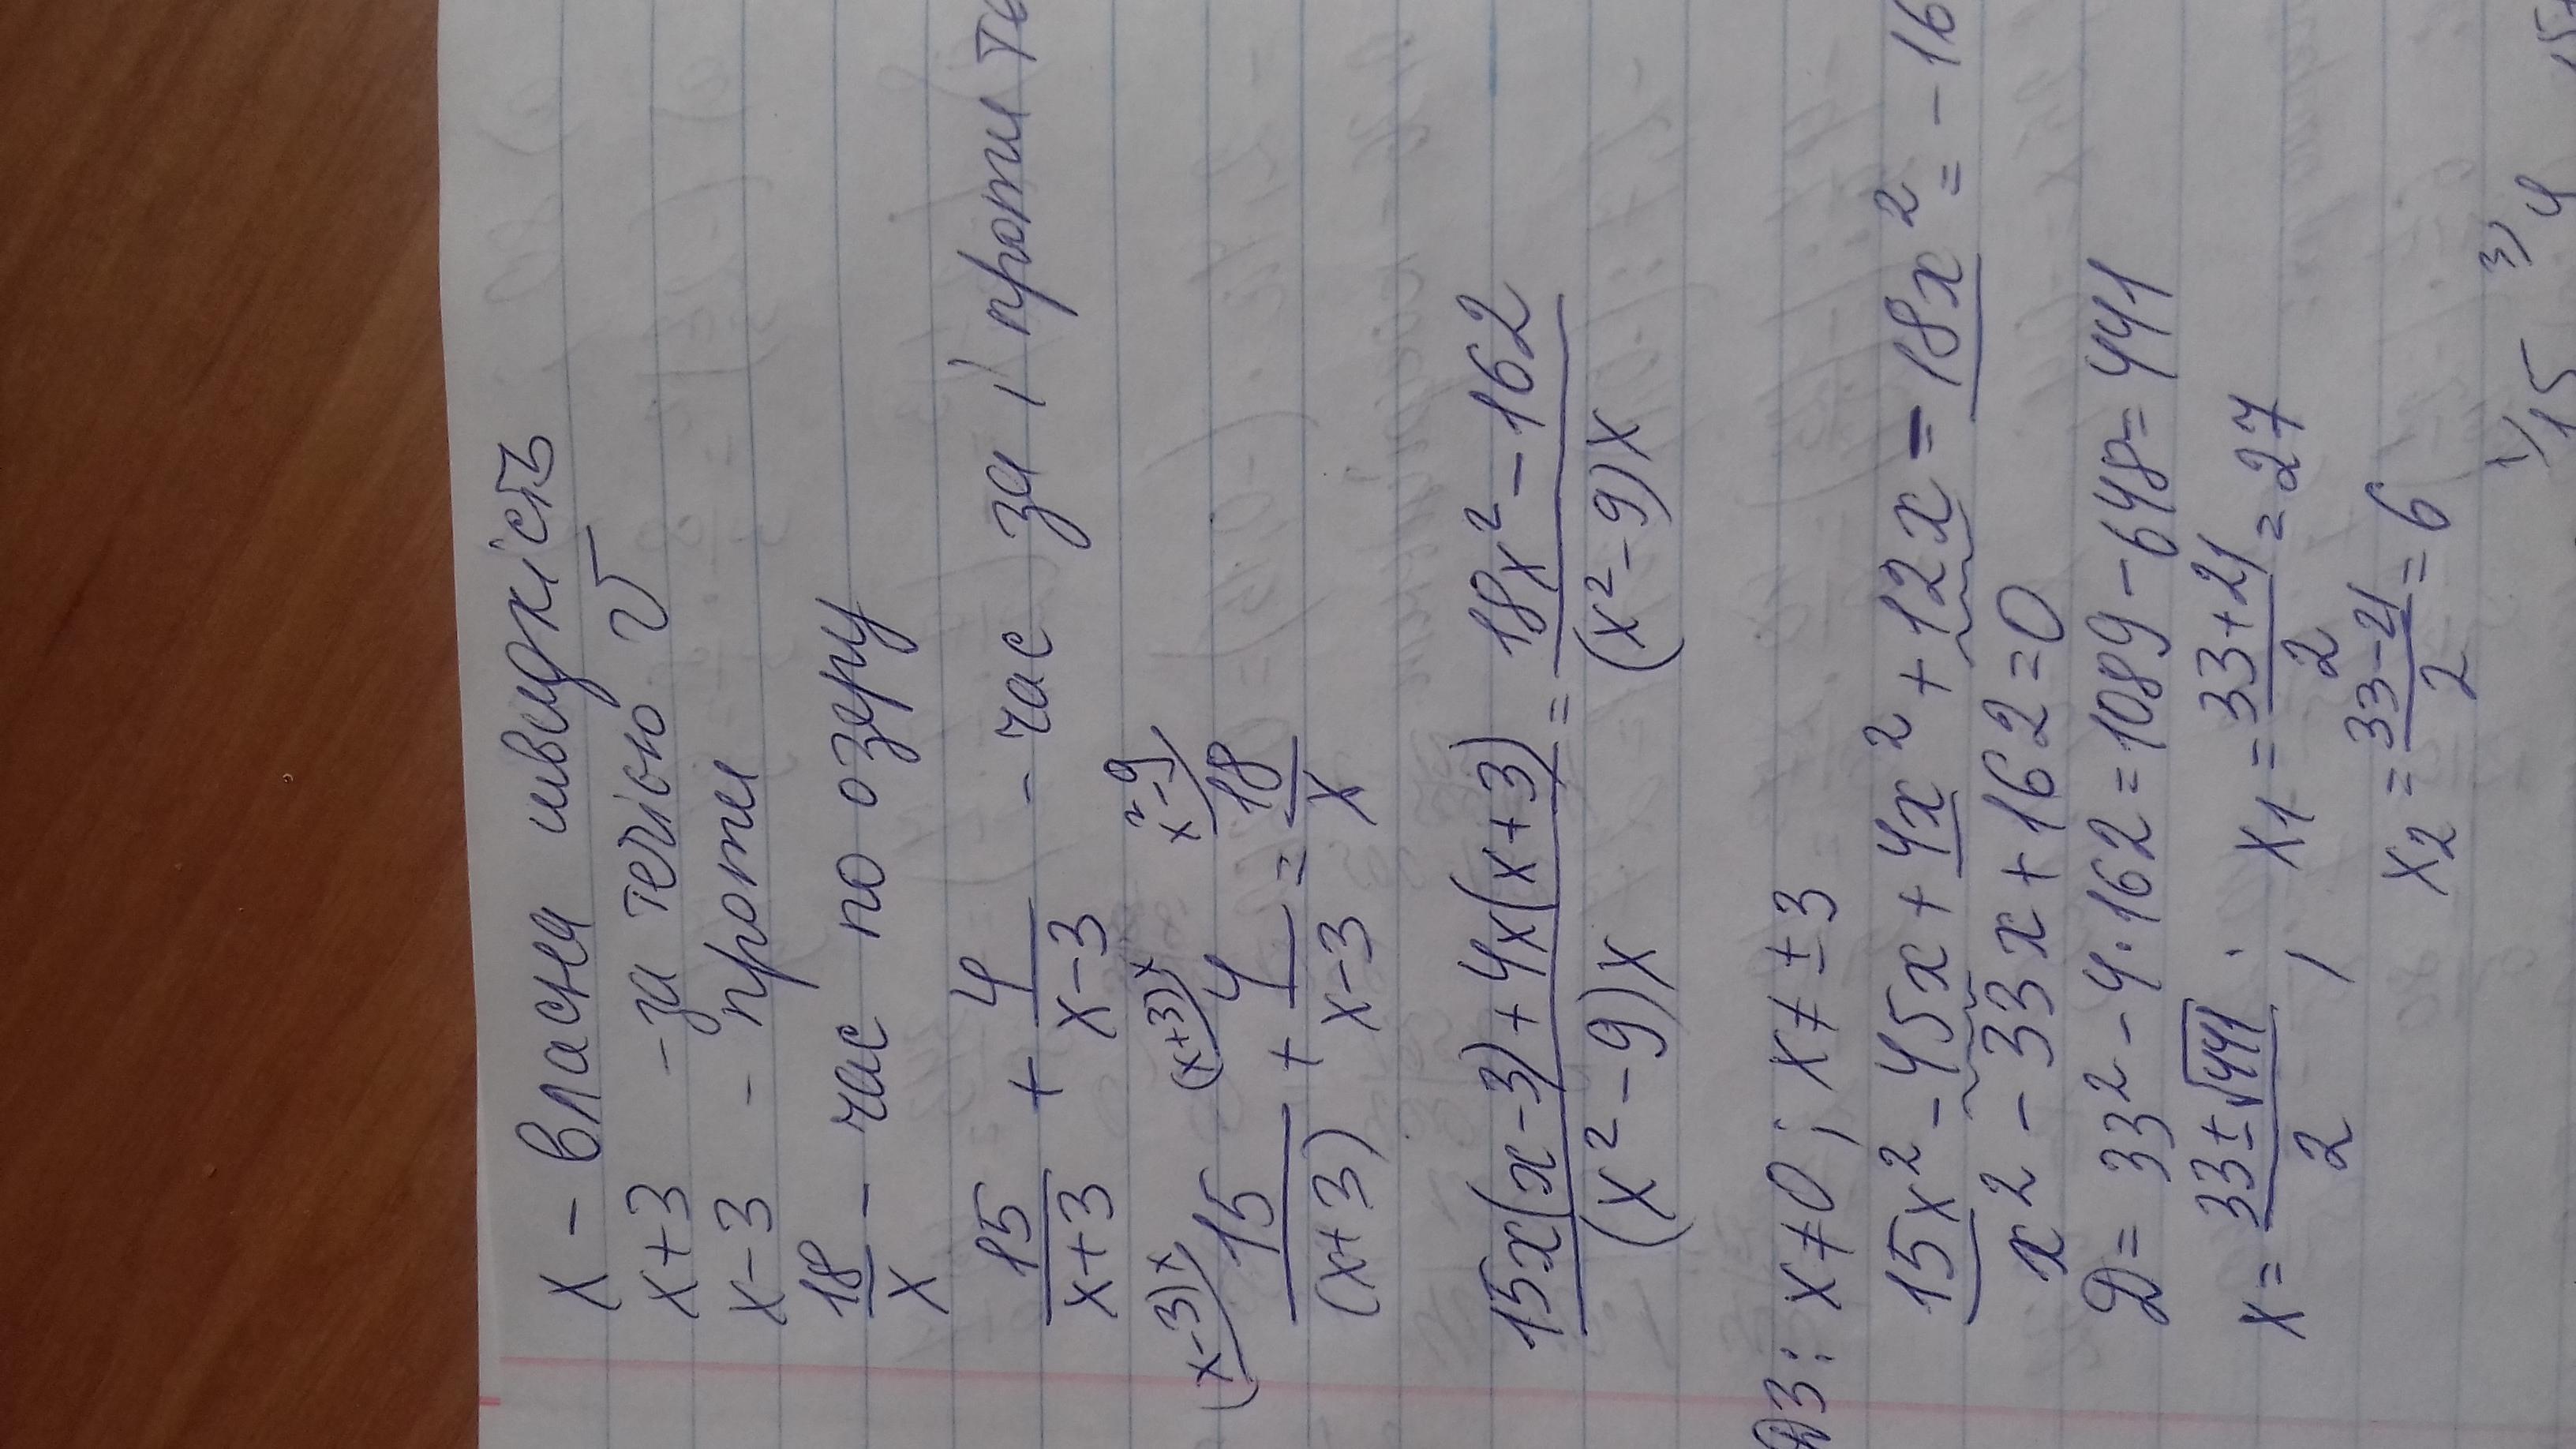 x - власна швидкість
x+3 - за течією V
x-3 - проти
18/x - час по озеру
15/(x+3) + 4/(x-3) - час за / проти те
(x-3)x (x+3)x x²-9
15/(x+3) + 4/(x-3) = 18/x
(15x(x-3)+4x(x+3))/((x²-9)x) = (18x²-162)/((x²-9)x)
ОДЗ: x≠0; x≠±3
15x²-45x+4x²+12x=18x²=-16
x²-33x+162=0
D=33²-4·162=1089-648=441
x=(33±√441)/2; x₁=(33+21)/2=27
x₂=(33-21)/2=6
1) 15 3) 4